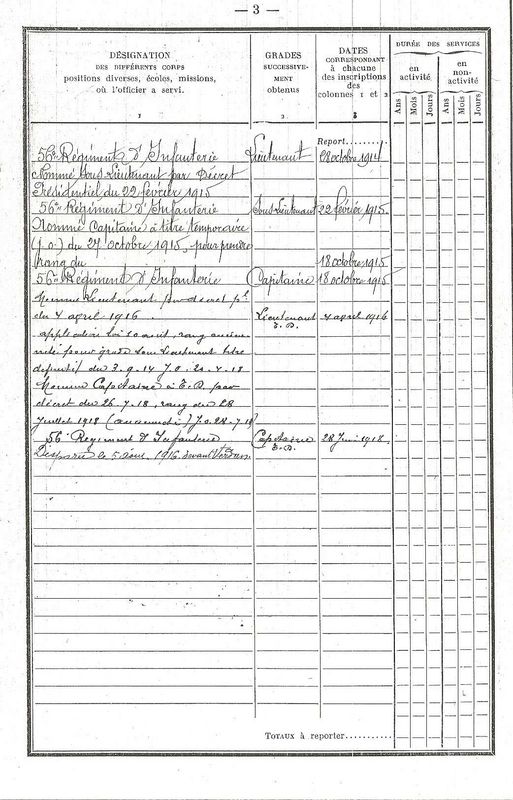 — 3 —
DÉSIGNATION
DES DIFFÉRENTS CORPS
positions diverses, écoles, missions,
où l'officier a servi.
1
GRADES
SUCCESSIVE-
MENT
obtenus
2
DATES
CORRESPONDANT
à chacune
des inscriptions
des
colonnes 1 et 2
3
DURÉE DES SERVICES
en
activité
en
non-
activité
Ans
Mois
Jours
Ans
Mois
Jours
Report
56e Régiment d'Infanterie Lieutenant 8 octobre 1914
Nommé Sous-Lieutenant par Décret
Présidentiel du 22 février 1915
56e Régiment d'Infanterie Sous-Lieutenant 22 février 1915
Nommé Capitaine à titre temporaire
(J.O.) du 27 octobre 1915, pour prendre
rang du 18 octobre 1915
56e Régiment d'Infanterie Capitaine 18 octobre 1915
Nommé Lieutenant par décret pl
du 4 april 1916. Lieutenant 4 april 1916
T.D.
application loi 10 août, rang ancien-
neté pour grade sous Lieutenant titre
définitif du 3.9.14 J.O. 20.4.18
Nommé Capitaine à T.D. par
décret du 26.7.18, rang du 28
Juillet 1918 J.O. 28.7.18
56e Régiment d'Infanterie Capitaine 28 Juin 1918.
T.D.
Disparu le 5 août 1916 devant Verdun
TOTAUX à reporter